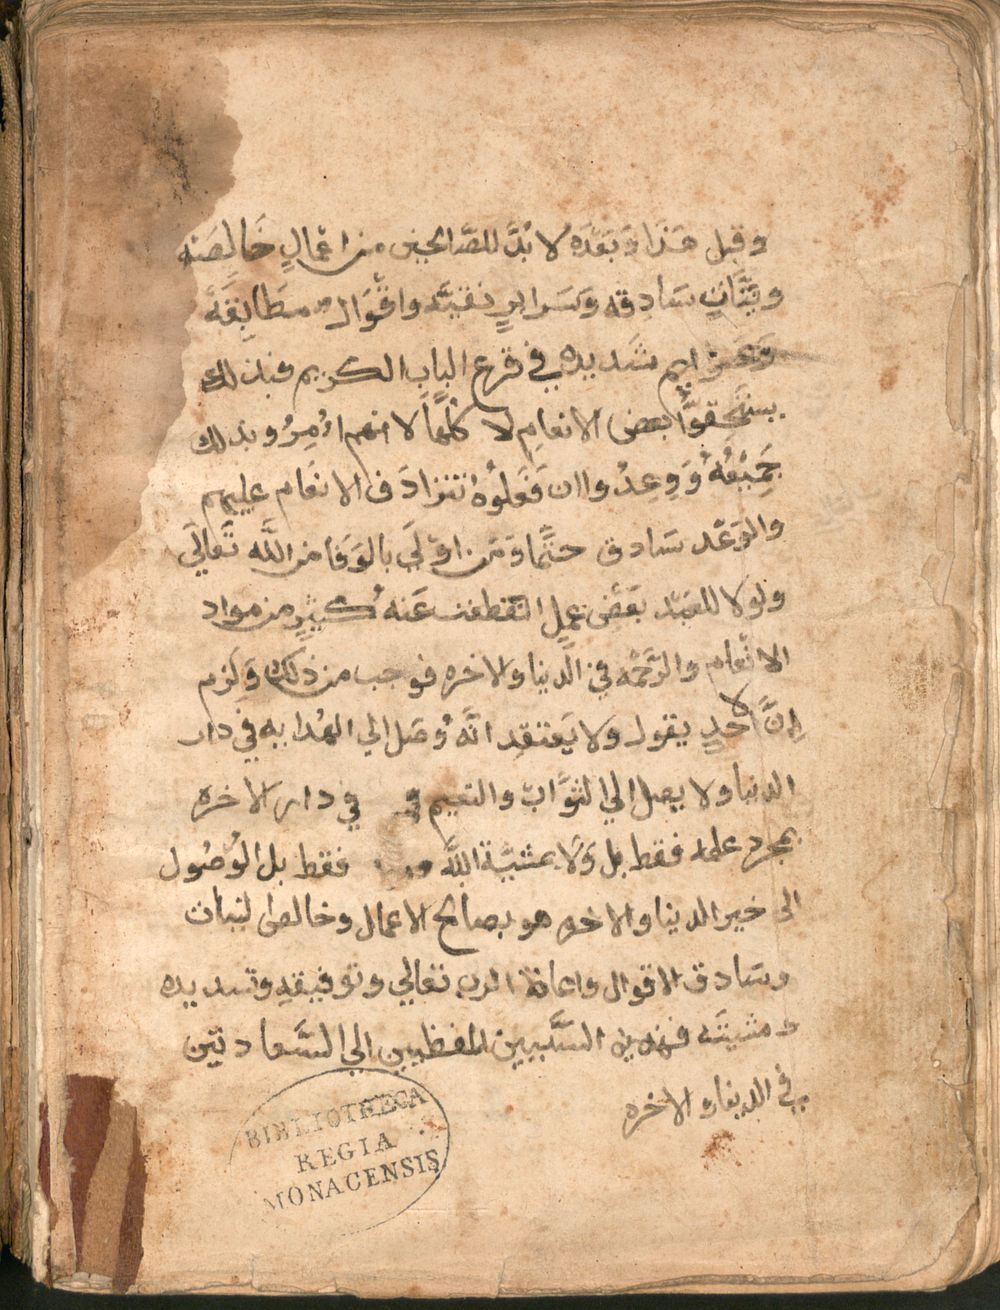 وقبل هَذا وَبَعْدَه لا بُدَّ للصَّالحين من اعمالٍ خَالصَه
ونِيَّاتٍ سَادقه وَسَرايرٍ نقيَّه واقْوَال مطَابِقَةً
وَعزايم شَديده في قرع الباب الكريم فبذلك
يستَحِقوَّا بعض الانعامِ لا كُلهَا لانهم اُمِرُو بذلك
جَمِيْعُهُ وَوِعدُوا ان فَعَلوُهُ تتزادَف الانعَام عليهم
والوَعْد سَادق حتمًا وَمَن اوْلَي بالوَفا من اللَّه تَعالَي
ولولا للعَبْد بَعَض عملٍ انقطعت عَنهُ كثيرٍ من مواد
الانْعام والرَّحْمه في الدنيا ولاخره فوجب من ذلك وَلَزم
انَّ لا احَدٍ يقول ولا يَعتقد انَّهُ وُصَل الي الهُدايه في دار
الدنيا ولا يصل الي الثوَّاب والنعيم في دار الاخره
بمجرد علمه فقط بل وَلا بمشيَّة اللَّه فقط بل الوُصُول
الى خير الدنيا والاخره هو بصالح الاعمال وخالص لنيات
وسَادق الاقوال واعانة الرب تعالي وتوفيقهِ وتسديده
ومشيتَه فهذين السَّبَبين المفظيين الي السَّعادتين
في الدنيا والاخره
BIBLIOTHECA
REGIA
MONACENSIS